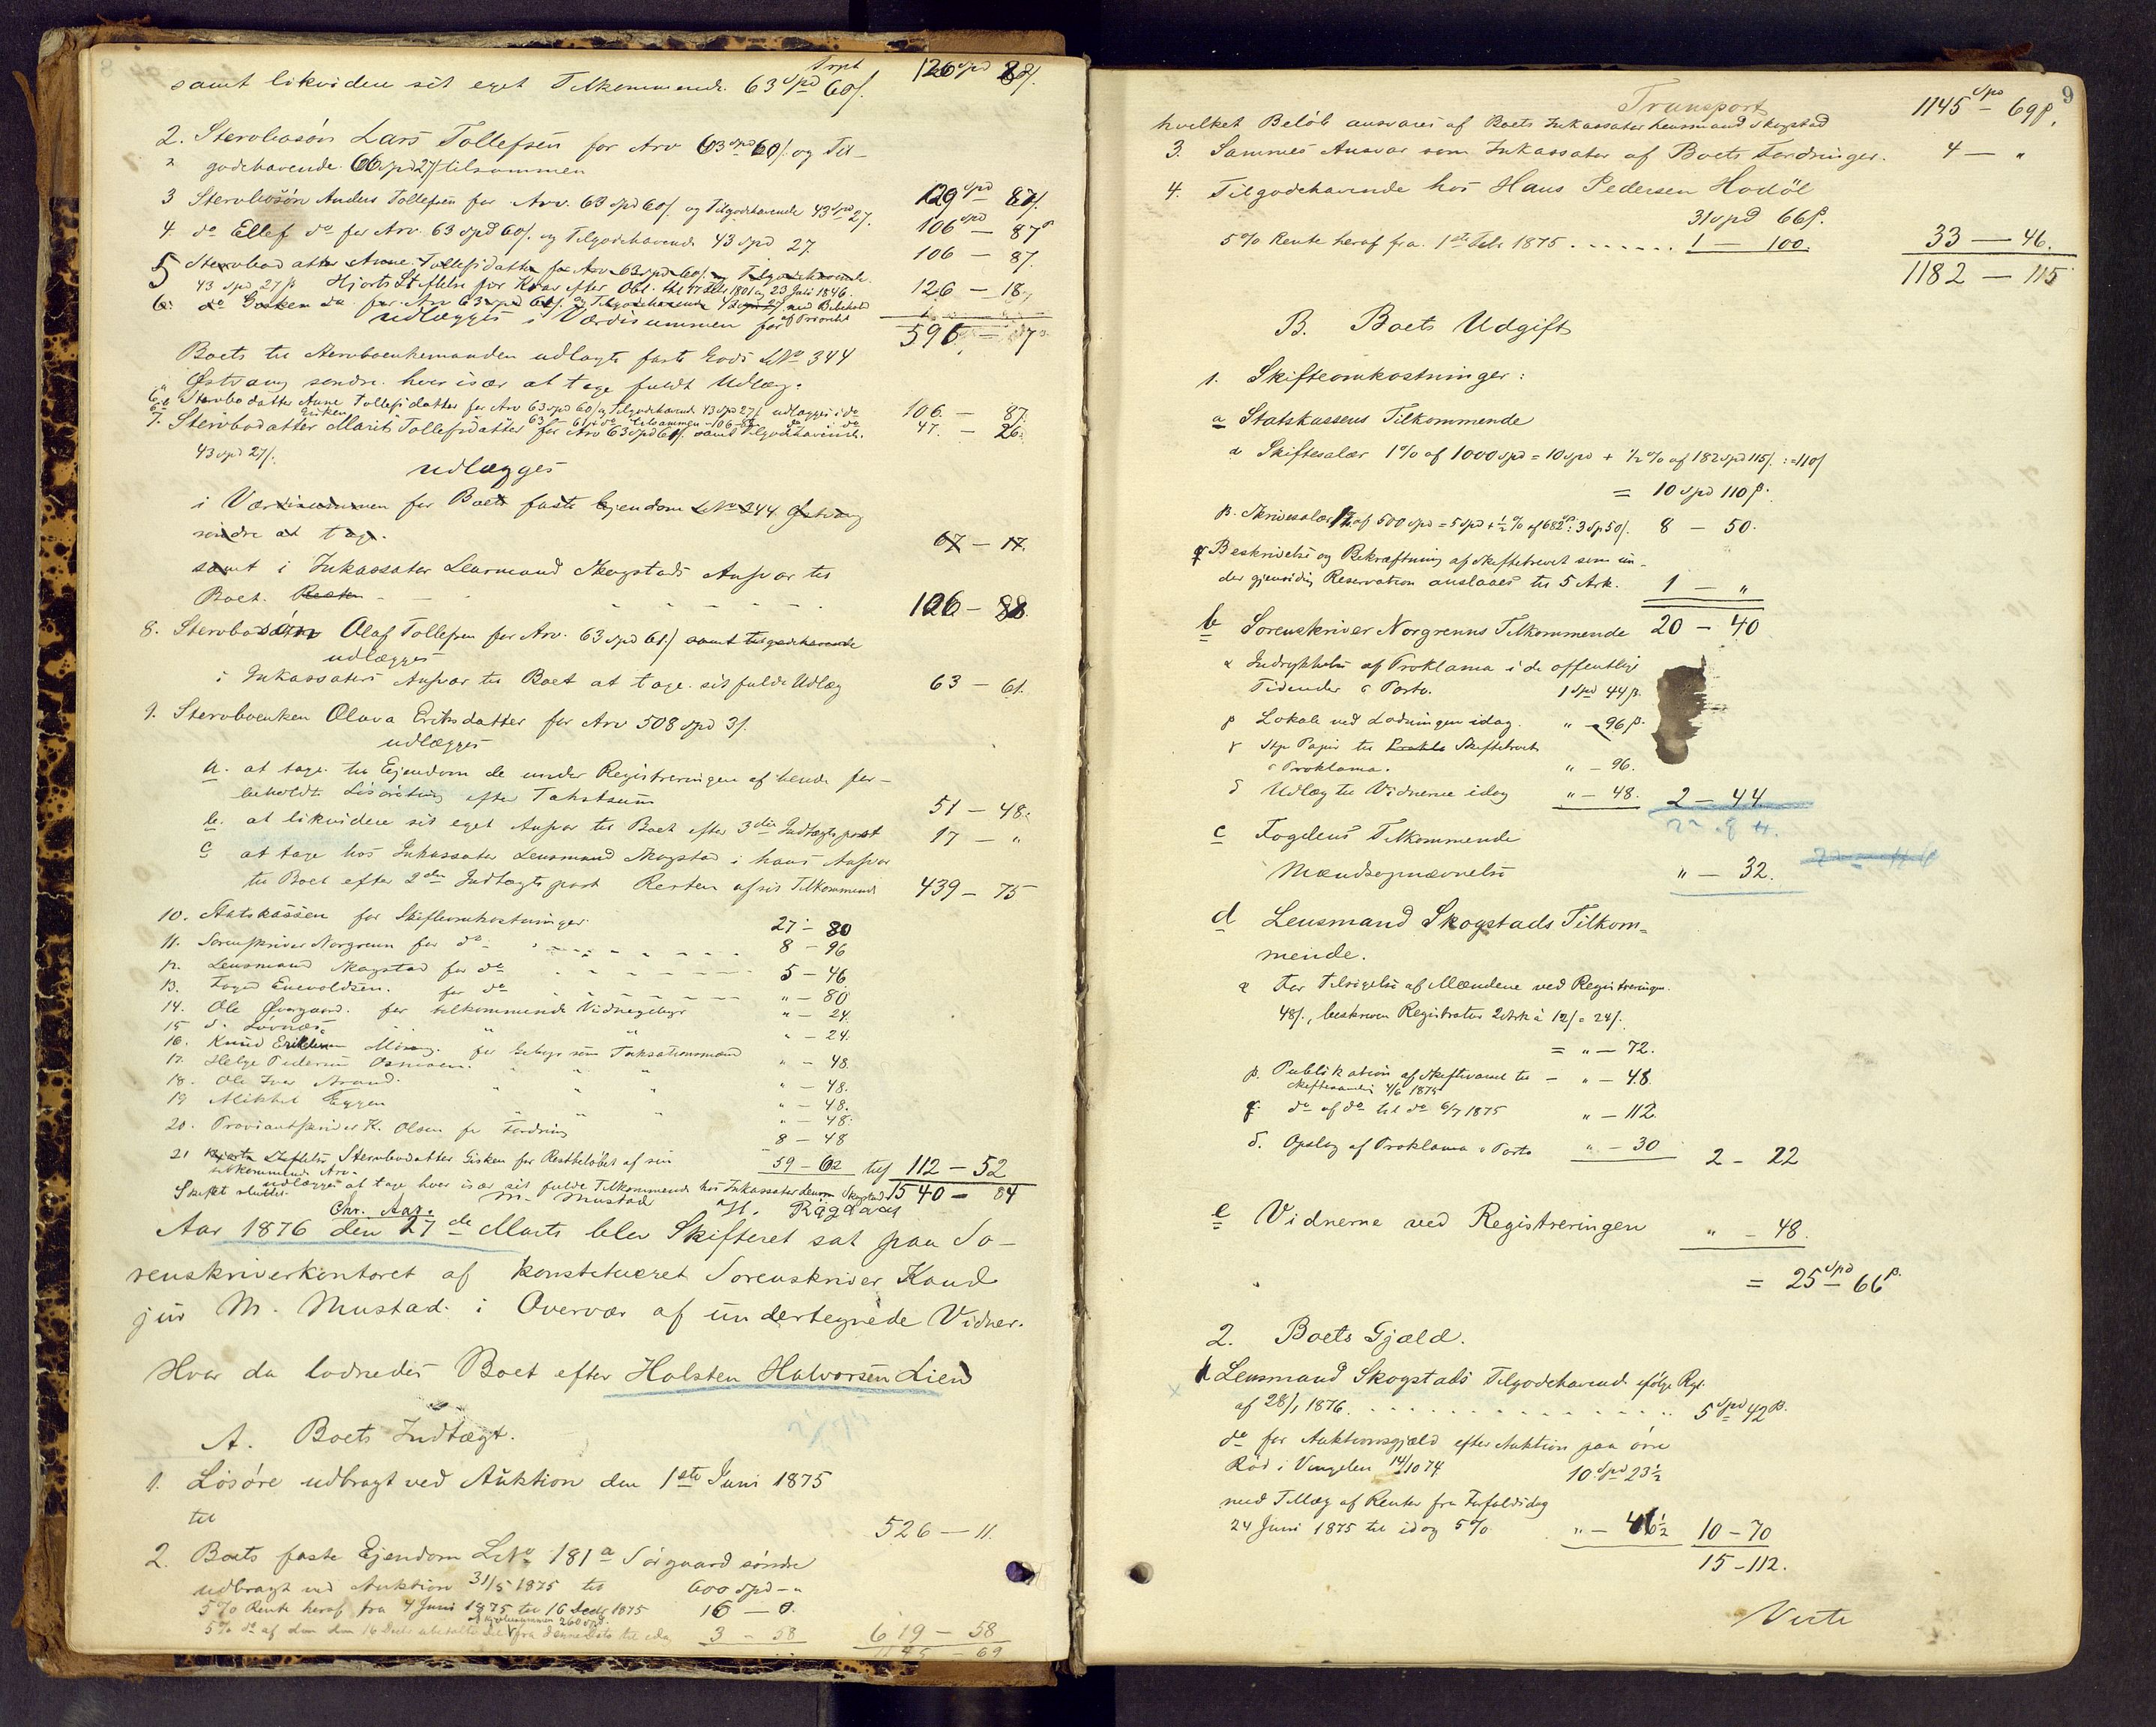 Trpt
samt likvidere sit eget Tilkommende 63 Spd 60 β. 126 Spd 88 β.
2. Stervbosøn Lars Tollefsen for Arv 63 Spd 60 β. og Til-
godehavende 66 Spd 27 β tilsammen 129 Spd 87 β.
3 Stervbosøn Anders Tollefsen for Arv. 63 Spd 60 β. og Tilgodehavende 43 Spd 27. 106 Spd – 87 β
4 do Ellef do for Arv. 63 Spd 60 β. og Tilgodehavende 43 Spd 27. 106 – 87.
5 Stervbodatter Anne Tollefsdatter for Arv 63 Spd 60 β. og Tilgodehavende
43 Spd 27 β Hjorts Stiftelse for Krav efter Obl. 126 – 18.
6. do Gisken do for Arv 63 Spd 60 β. og Tilgodehavende 43 Spd 27 med Beholdt
udlægges i Værdisummen for af Prioritet 596 – 7
Boets til Stervboenkemanden udlagte faste Gods LNo 344
Østvang søndre hver især at tage fuldt Udlæg.
6. Stervbodatter Anne Tollefsdatter for Arv 63 Spd 60 β og Tilgodehavende 43 Spd 27 β udlægges i do 106. – 87.
Gisken 63 – 61 tilsammen – 106 – 88
7. Stervbodatter Marit Tollefsdatter for Arv 63 Spd 61 β. samt Tilgodehavende 47. – 26.
43 Spd 27 β.
udlægges
i Værdisummen for Boets faste Ejendom LNo 344 Østvang
søndre at tage. 67 – 17.
samt i Inkassator Lensmand Skogstads Ansvar til
Boet. Resten 106 – 88.
8. Stervbosøn Olaf Tollefsen for Arv. 63 Spd 61 β samt tilgodehavende
udlægges
i Inkassators Ansvar til Boet at tage sit fulde Udlæg 63 – 61.
9. Stervboenken Olava Eriksdatter for Arv 508 Spd 3 β.
udlægges
a. at tage til Ejendom de under Registreringen af hende for-
beholdte Løsøreting efter Takstsum 51 – 48.
b. at likvidere sit eget Ansvar til Boet efter 3die Indtægtspost 17 – "
c at tage hos Inkassator Lensmand Skogstad i hans Ansvar
til Boet efter 2den Indtægtspost Resten af sit Tilkommende 439 – 75
10. Statskassen for Skifteomkostninger 27 – 80
11. Sorenskriver Norgrenn for do 8 – 96
12. Lensmand Skogstad for do 5 – 46
13. Foged Enevoldsen. for do " – 80
14. Ole Øvergaard. for tilkommende Vidnegebyr " – 24.
15 S. Løvnæs. " " " – 24.
16. Knud Eriksen Moseng. for Gebyr som Taksationsmand " – 48.
17. Helge Pedersen Osmoen. " " " " – 48.
18. Ole Iver Strand. " " " – 48.
19 Mikkel Eggen " " " " – 48.
20. Proviantskriver K. Olsen for Fordring 8 – 48
21 Hjorts Stiftelse Stervbodatter Gisken for Restbeløbet af sin 59 – 62 tils 112 – 52
tilkommende Arv.
udlægges at tage hver især sit fulde Tilkommende hos Inkassator Lensm Skogstad 1540 – 84
Skiftet sluttet.
Chr. Aas. M. Mustad H.
Aar 1876 den 27de Marts blev Skifteret sat paa So-
renskriverkontoret af konstitueret Sorenskriver Kand
jur M. Mustad i Overvær af undertegnede Vidner.
Hvor da lodnedes Boet efter Holsten Halvorsen Lien
A. Boets Indtægt.
1. Løsøre udbragt ved Auktion den 1ste Juni 1875
til 526 – 11.
2. Boets faste Ejendom LNo 181a Sørgaard søndre
udbragt ved Auktion 31/5 1875 til 600 Spd – "
5% Rente heraf fra 4 Juni 1875 til 16 Decbr 1875 16 – 0.
af Kjøbesummen 260 Spd.
5% do af den den 16 Decbr ubetalte Del fra denne Dato til idag 3 – 58 619 – 58
1145 – 69
9
Transport 1145 Spd – 69 β.
hvilket Beløb ansvares af Boets Inkassator Lensmand Skogstad
3. Sammes Ansvar som Inkassator af Boets Fordringer. 4 – "
4. Tilgodehavende hos Hans Pedersen Hodøl
31 Spd 66 β.
5% Rente heraf fra 1ste Febr 1875 1 – 100. 33 – 46.
1182 – 115
B. Boets Udgift
1. Skifteomkostninger:
a Statskassens Tilkommende
α Skiftesalær 1% af 1000 Spd = 10 Spd + ½% af 182 Spd 115 β. = 110 β
= 10 Spd 110 β.
β. Skrivesalær 1% af 500 Spd = 5 Spd + ½% af 682 Sp: 3 Sp 50 β. 8 – 50.
γ Beskrivelse og Bekræftning af Skiftebrevet som un-
der gjensidig Reservation anslaaes til 5 Ark. 1 – "
b Sorenskriver Norgrenns Tilkommende 20 – 40
α Indrykkelse af Proklama i de offentlige
Tidender & Porto. 1 Spd 44 β.
β Lokale ved Lodningen idag. " – 96 β.
γ Stp. Papir til Prokla Skiftebrevet
& Proklama. " – 96.
δ Udlæg til Vidnerne idag " – 48. 2 – 44
c Fogdens Tilkommende
Mændsopnævnelse " – 32.
d Lensmand Skogstads Tilkom-
mende.
α For Tilsigelse af Mændene ved Registreringen.
48 β., beskreven Registratur 2 Ark à 12 β = 24 β.
= " – 72.
β. Publikation af Skiftevarsel til – " – 48.
Skiftesamling 4/6 1875
γ. do af do til do 6/7 1875 " – 112
δ. Opslag af Proklama & Porto " – 30 2 – 22
e Vidnerne ved Registreringen " – 48.
= 25 Spd 66 β.
2. Boets Gjæld.
1 Lensmand Skogstads Tilgodehavende ifølge Rgn.
af 28/1 1876. 5 Spd 42 β.
do for Auktionsgjæld efter Auktion paa øvre
Rød i Vingelen 14/10 74 10 Spd 23½
med Tillæg af Renter fra Forfaldsdag
24 Juni 1875 til idag 5% " – 46½ 10 – 70
15 – 112.
Verte